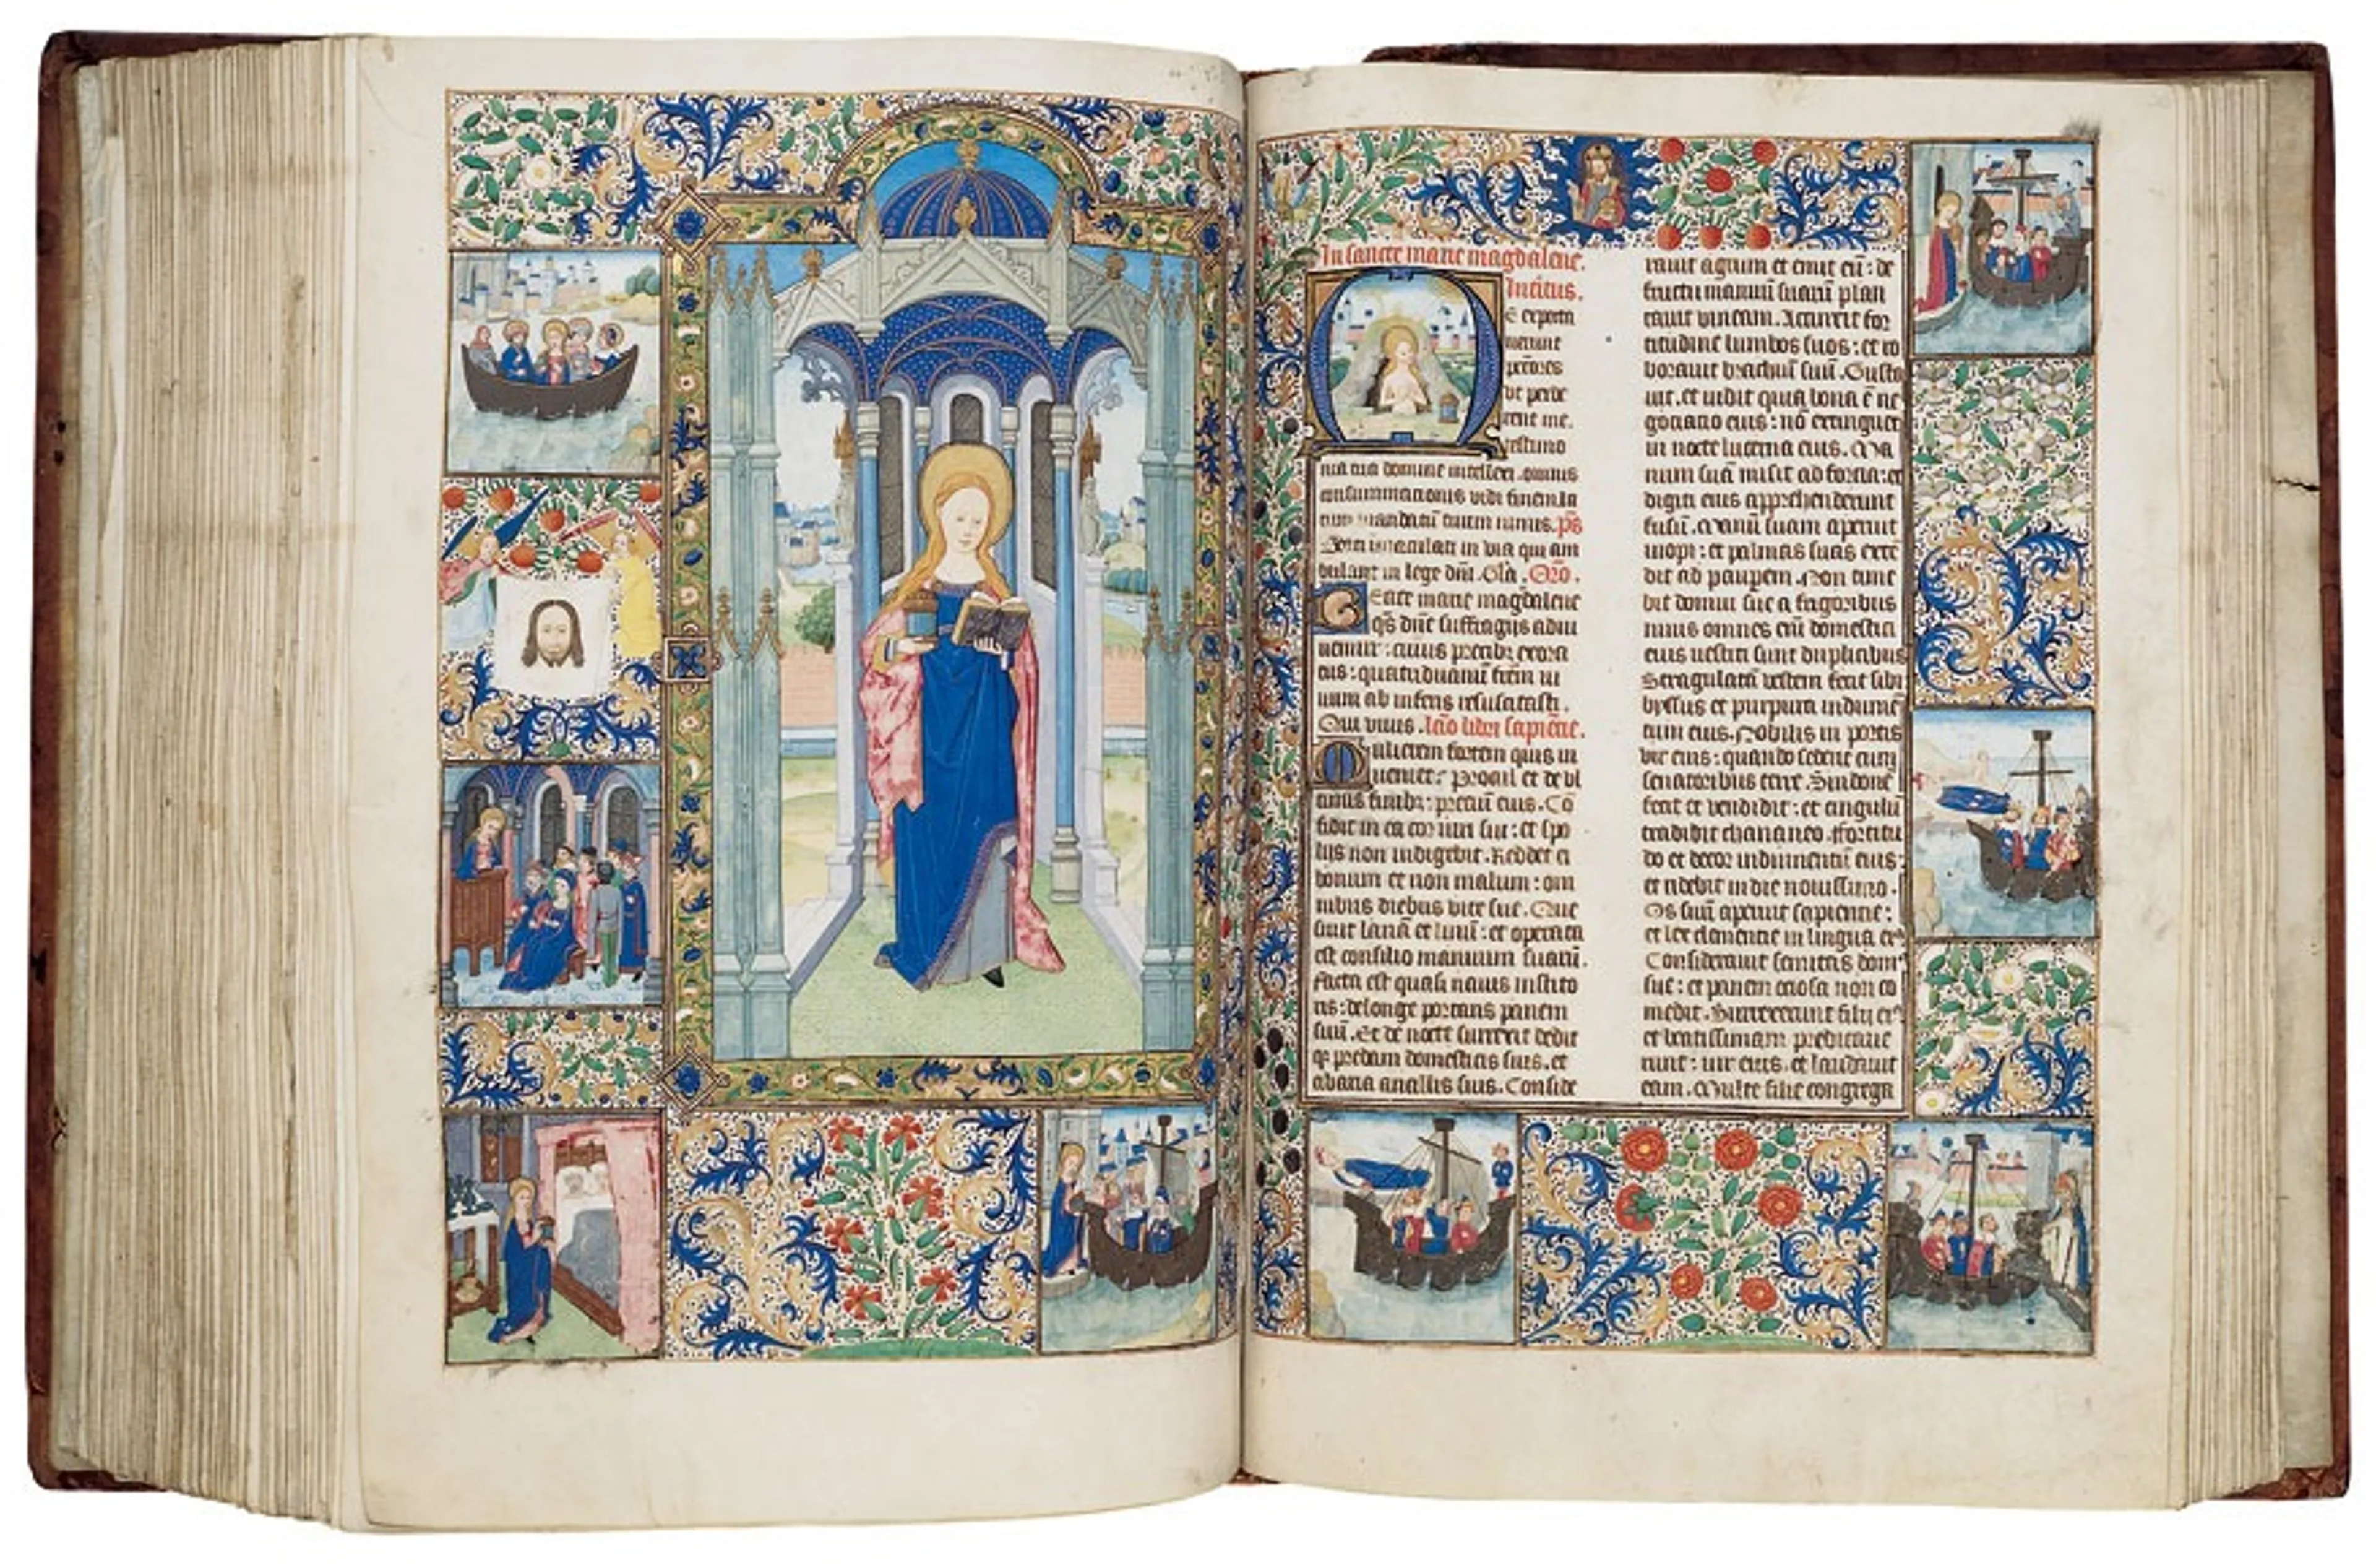 In sancte marie magdalene.
Introitus.
E expecta
verunt
pctores
vt perde
rent me.
testimo
nia tua domine intellexi. omnis
consummationis vidi finem la
tum mandatū tuum nimis. p̄s
Beati immaculati in via qui am
bulant in lege dn̄i. Glā. Orō.
Beate marie magdalene
qs̄ dn̄e suffragijs adiu
uemur: cuius precibꝫ exora
tus: quatriduanū frēm vi
uum ab inferis resuscitasti.
Qui viuis. lcō libri sapiētie.
Mulierem fortem quis in
ueniet? Procul et de vl
timis finibꝫ: preciū eius. Cō
fidit in ea cor viri sui: et spo
lijs non indigebit. Reddet ei
bonum et non malum: om
nibus diebus vite sue. Que
siuit lanā et linū: et operata
est consilio manuum suarū.
Facta est quasi nauis instito
ris: de longe portans panem
suū. Et de nocte surrexit dedit
qꝫ predam domesticis suis. et
cibaria ancillis suis. Conside
rauit agrum et emit eū: de
fructu manuū suarū plan
tauit vineam. Accinxit for
titudine lumbos suos: et ro
borauit brachiū suū. Gusta
uit. et vidit quia bona ē ne
gotiatio eius: nō extinguet
in nocte lucerna eius. Ma
num suā misit ad fortia: et
digiti eius apprehenderunt
fusū. Manū suam aperuit
inopi: et palmas suas exten
dit ad paupem. Non time
bit domui sue a frigoribus
niuis omnes eī domestici
eius vestiti sunt duplicibus
Stragulatā vestem fecit sibi
byssus et purpura indumē
tum eius. Nobilis in portis
vir eius: quando sederit cum
senatoribus terre. Sindonē
fecit et vendidit: et cingulū
tradidit chananeo. Fortitu
do et decor indumentū eius:
et ridebit in die nouissimo.
Os suū aperuit sapientie:
et lex clementie in lingua eꝰ
Considerauit semitas domꝰ
sue: et panem ociosa non co
medit. Surrexerunt filij eiꝰ
et beatissimam predicaue
runt: vir eius. et laudauit
eam. Multe filie congrega